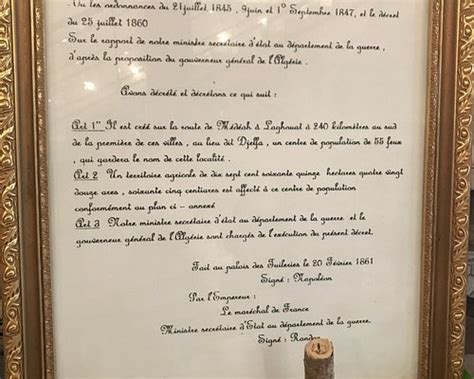 Vu les ordonnances du 21 juillet 1845, 9 juin et 1° Septembre 1847, et le décret
du 25 juillet 1860
Sur le rapport de notre ministre secrétaire d'état au département de la guerre,
d'après la proposition du gouverneur général de l'Algérie.
Avons décrété et décrétons ce qui suit :
Art 1er Il est créé sur la route de Médéah à Laghouat à 240 kilomètres au sud
de la première de ces villes, au lieu dit Djelfa, un centre de population de 55 feux
, qui gardera le nom de cette localité.
Art 2 Un territoire agricole de dix sept cent soixante quinze hectares quatre vingt
douze ares, soixante cinq centiares est affecté à ce centre de population
conformément au plan ci - annexé
Art 3 Notre ministre secrétaire d'état au département de la guerre et le
gouverneur général de l'Algérie sont chargés de l'exécution du présent décret.
Fait au palais des Tuileries le 20 Février 1861
Signé : Napoléon
Par l'Empereur :
Le maréchal de France
Ministre secrétaire d'Etat au département de la guerre.
Signé : Randon